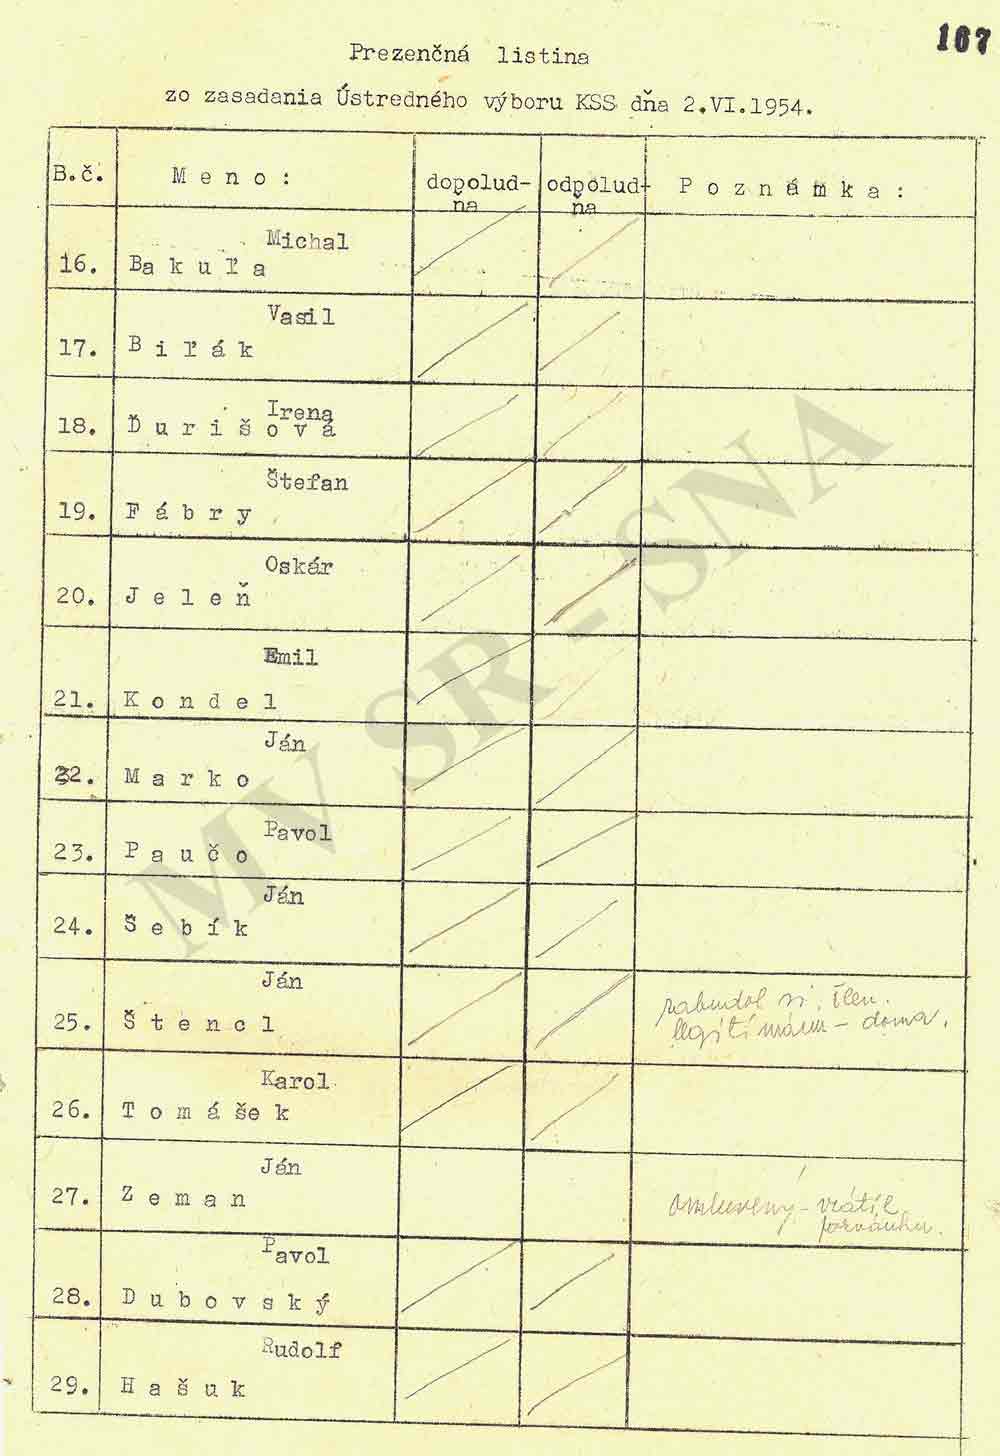 167
Prezenčná listina
zo zasadania Ústredného výboru KSS dňa 2.VI.1954.
B.č. Meno: dopolud-ňa odpolud-ňa Poznámka:
Michal
16. Bakuľa
Vasil
17. Biľák
Irena
18. Ďurišová
Štefan
19. Fábry
Oskár
20. Jeleň
Emil
21. Kondel
Ján
22. Marko
Pavol
23. Paučo
Ján
24. Šebík
Ján
25. Štencl
zabudol si člen.
legitimáciu - doma.
Karol
26. Tomášek
Ján
27. Zeman
omluvený - vrátil
pozvánku.
Pavol
28. Dubovský
Rudolf
29. Hašuk
MV SR - SNA